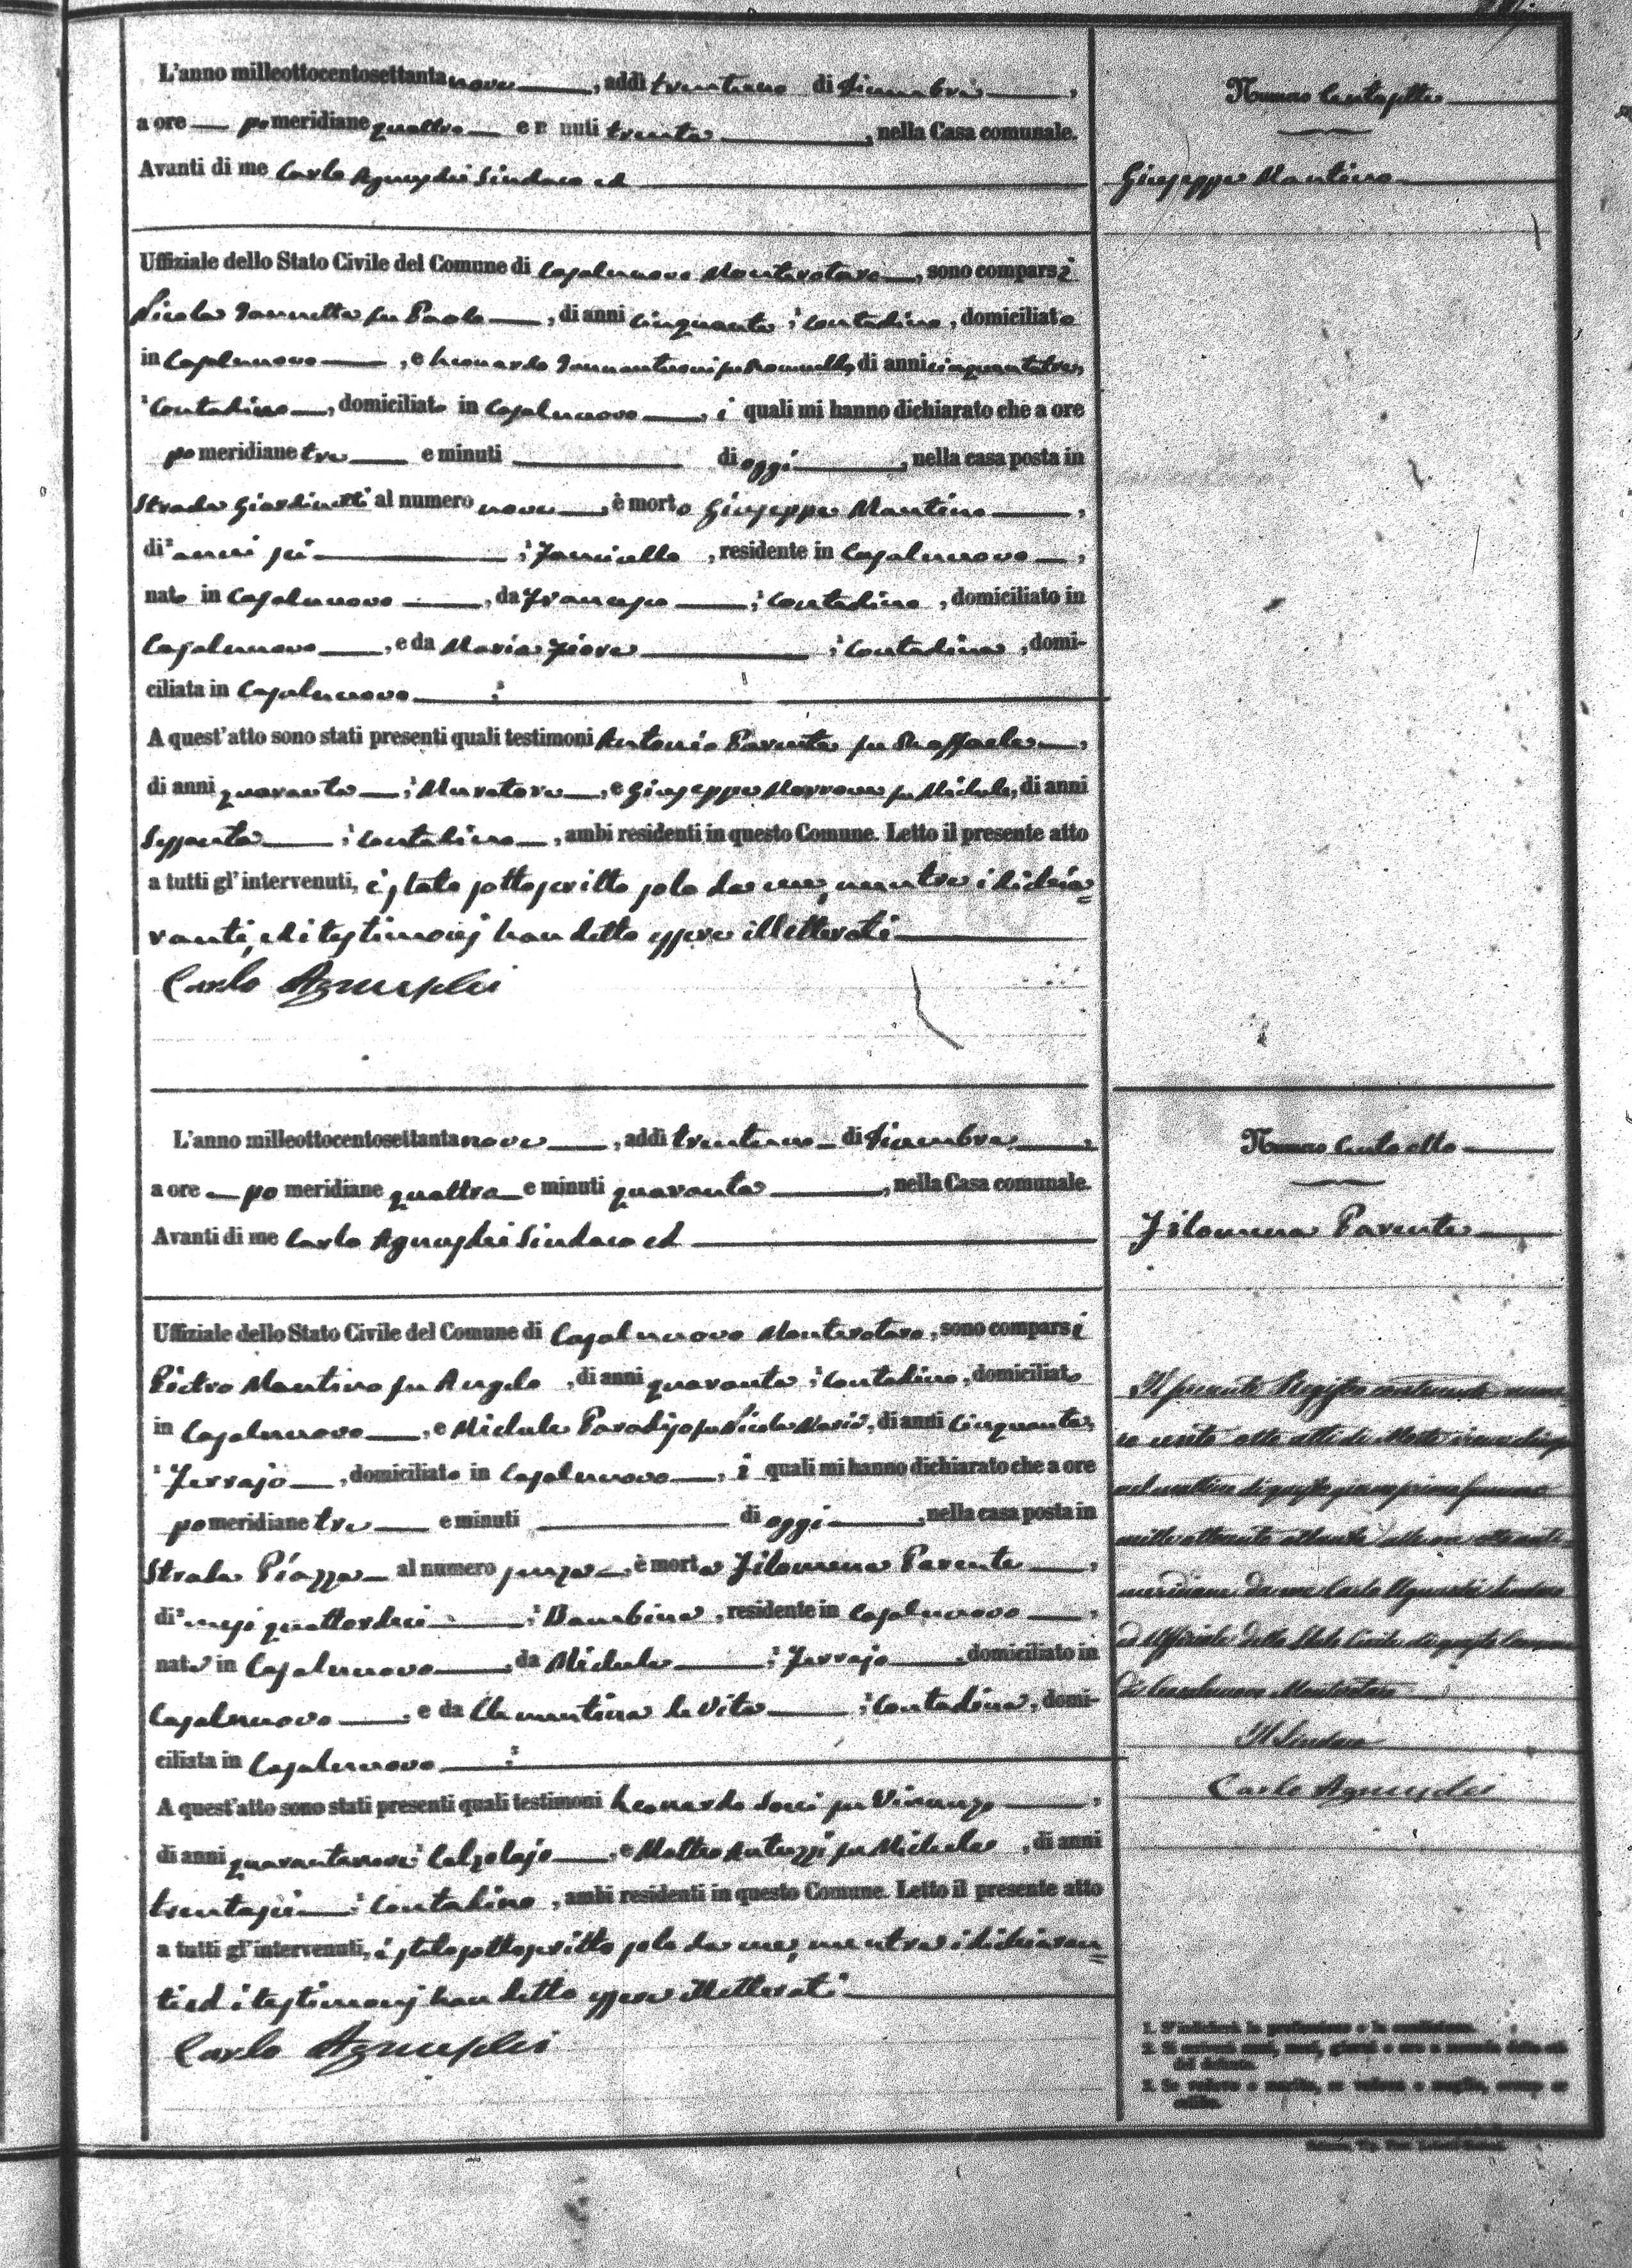 L'anno milleottocentosettantanove, addì trentuno di Dicembre,
a ore pomeridiane quattro e minuti trenta, nella Casa comunale.
Avanti di me Carlo Agnusdei Sindaco ed
Uffiziale dello Stato Civile del Comune di Casalnuovo Monterotaro, sono comparsi
Nicola Iannetta fu Paolo, di anni cinquanta, contadino, domiciliato
in Casalnuovo, e Leonardo Iannantuoni fu, di anni cinquantatre,
contadino, domiciliato in Casalnuovo, i quali mi hanno dichiarato che a ore
pomeridiane tre e minuti di oggi, nella casa posta in
Strada Giardinetti al numero nove, è morto Giuseppe Mantino,
di anni sei, Fanciullo, residente in Casalnuovo,
nato in Casalnuovo, da Francesco, contadino, domiciliato in
Casalnuovo, e da Maria Fiore, contadina, domi-
ciliata in Casalnuovo
A quest'atto sono stati presenti quali testimoni Antonio Parente fu Raffaele,
di anni quaranta, Muratore, e Giuseppe Marrone fu Michele, di anni
Sessanta, contadino, ambi residenti in questo Comune. Letto il presente atto
a tutti gl'intervenuti, è stato sottoscritto solo da me, mentre i dichia=
ranti, ed i testimonj han detto essere illetterati
Carlo Agnusdei
Numero Centosette
Giuseppe Mantino
L'anno milleottocentosettantanove, addì trentuno di Dicembre,
a ore pomeridiane quattro e minuti quaranta, nella Casa comunale.
Avanti di me Carlo Agnusdei Sindaco ed
Uffiziale dello Stato Civile del Comune di Casalnuovo Monterotaro, sono comparsi
Pietro Mantino fu Angelo, di anni quaranta, contadino, domiciliato
in Casalnuovo, e Michele Paradiso fu Nicola Maria, di anni Cinquanta,
Ferrajo, domiciliato in Casalnuovo, i quali mi hanno dichiarato che a ore
pomeridiane tre e minuti di oggi, nella casa posta in
Strada Piazza al numero senza, è morta Filomena Parente,
di mesi quattordici, Bambina, residente in Casalnuovo,
nata in Casalnuovo, da Michele, Ferrajo, domiciliato in
Casalnuovo, e da Clementina de Vita, Contadina, domi-
ciliata in Casalnuovo
A quest'atto sono stati presenti quali testimoni Leonardo Socci fu Vincenzo,
di anni quarantanove, Calzolajo, e Matteo Antuzzi fu Michele, di anni
trentasei, Contadino, ambi residenti in questo Comune. Letto il presente atto
a tutti gl'intervenuti, è stato sottoscritto solo da me, mentre i dichiaran=
ti ed i testimonj han detto essere illetterati
Carlo Agnusdei
Numero Centootto
Filomena Parente
Il presente Registro contenente nume=
ro cento otto atti di Morte
nel mattino di questo giorno primo Gennaro
mille ottocento ottanta alle ore anti=
meridiane da me Carlo Agnusdei Sindaco
ed Uffiziale dello Stato Civile di questo Comune
di Casalnuovo Monterotaro
Il Sindaco
Carlo Agnusdei
1. S'indicherà la professione o la condizione.
2. Si scriverà anni, mesi, giorni o ore a seconda della età
del defunto.
3. Se vedovo o marito, se vedova o moglie, ovvero se
celibe.